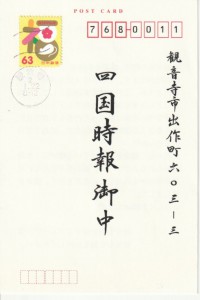 POST CARD
7680011
福
63
観音寺市出作町六〇三－三
四国時報御中